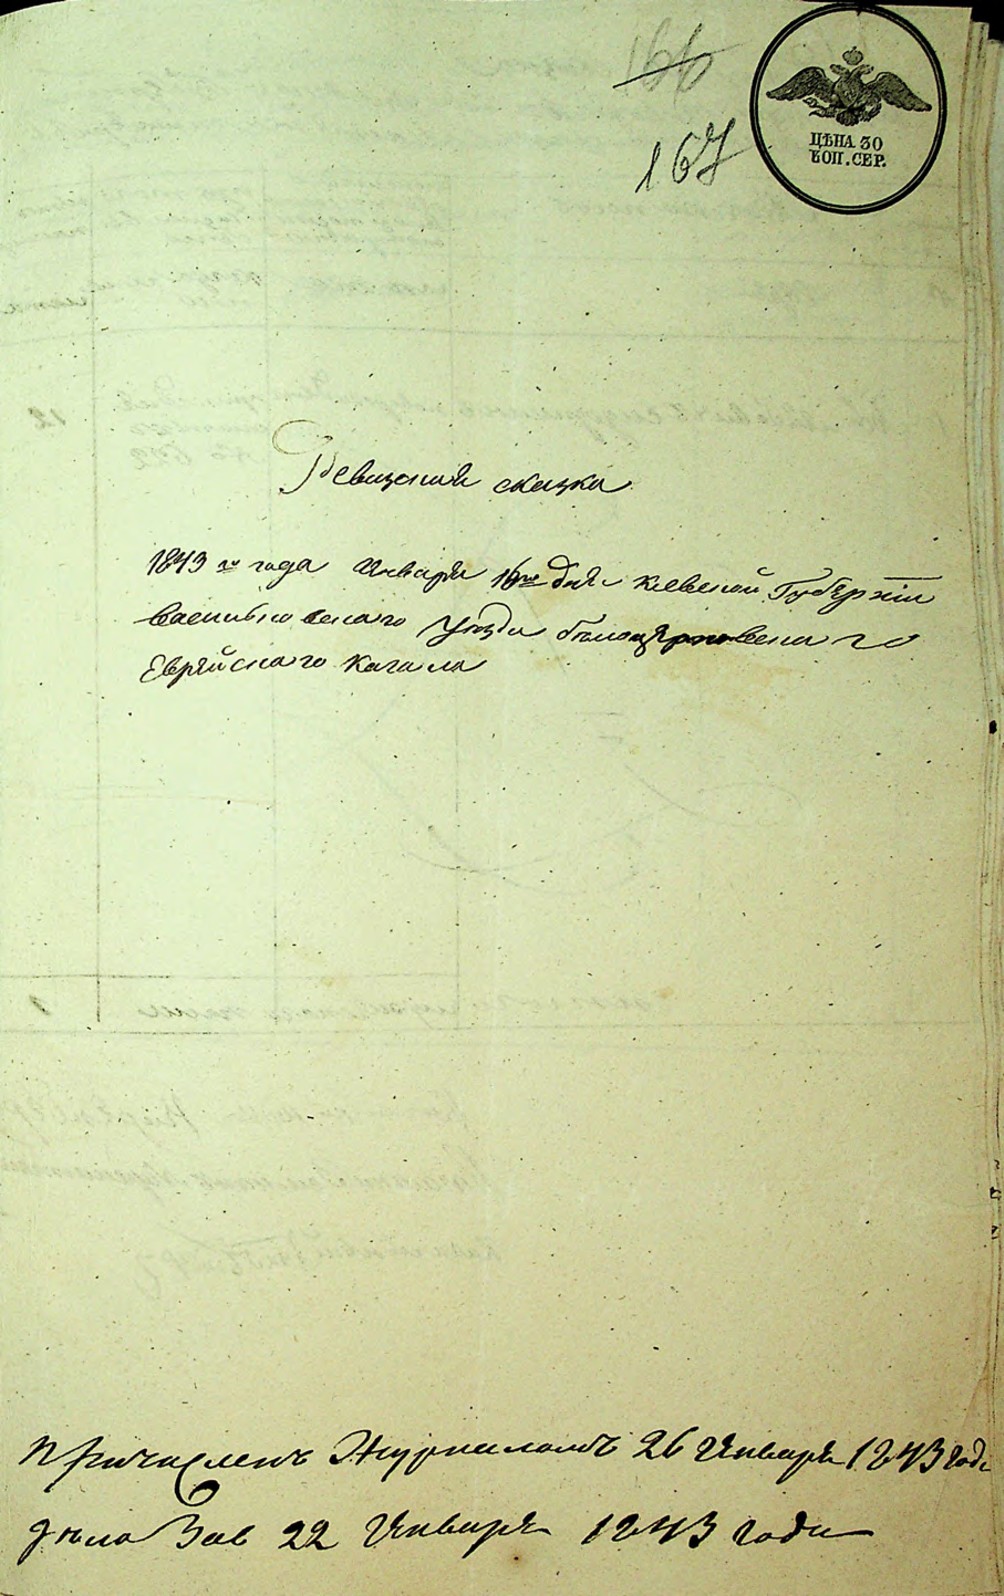 166
167
ЦѢНА 30
КОП. СЕР.
Ревизская сказка
1843 го года Января 16го дня Киевской Губерніи
Васильковскаго уѣзда белоцерковскаго
Еврейскаго Кагала
Причисленъ Журналомъ 26 Января 1843 года
дѣло 22 Января 1843 года